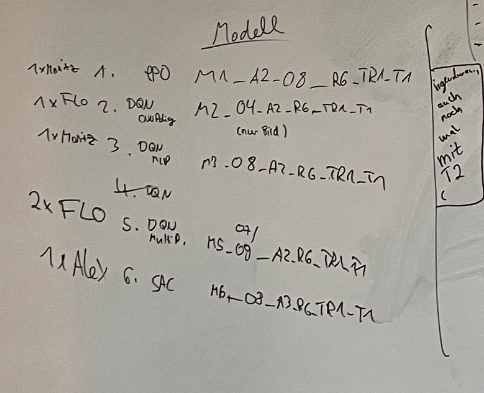 Modell
1xMoritz 1. PPO M1_A2-O8_R6_TR1_T1
1xFLO 2. DQN M2_O4-A2-R6_TR1_T1
(nur Bild)
1xMoritz 3. DQN MLP M3-O8_A2-R6_TR1_T1
4. DQN
2xFLO 5. DQN MultiP. M5_O8_A2_R6_TR1_T1
O7/
1xAlex 6. SAC M6_O8_A3_R6_TR1_T1
irgendwann
auch
noch
mal
mit
T2